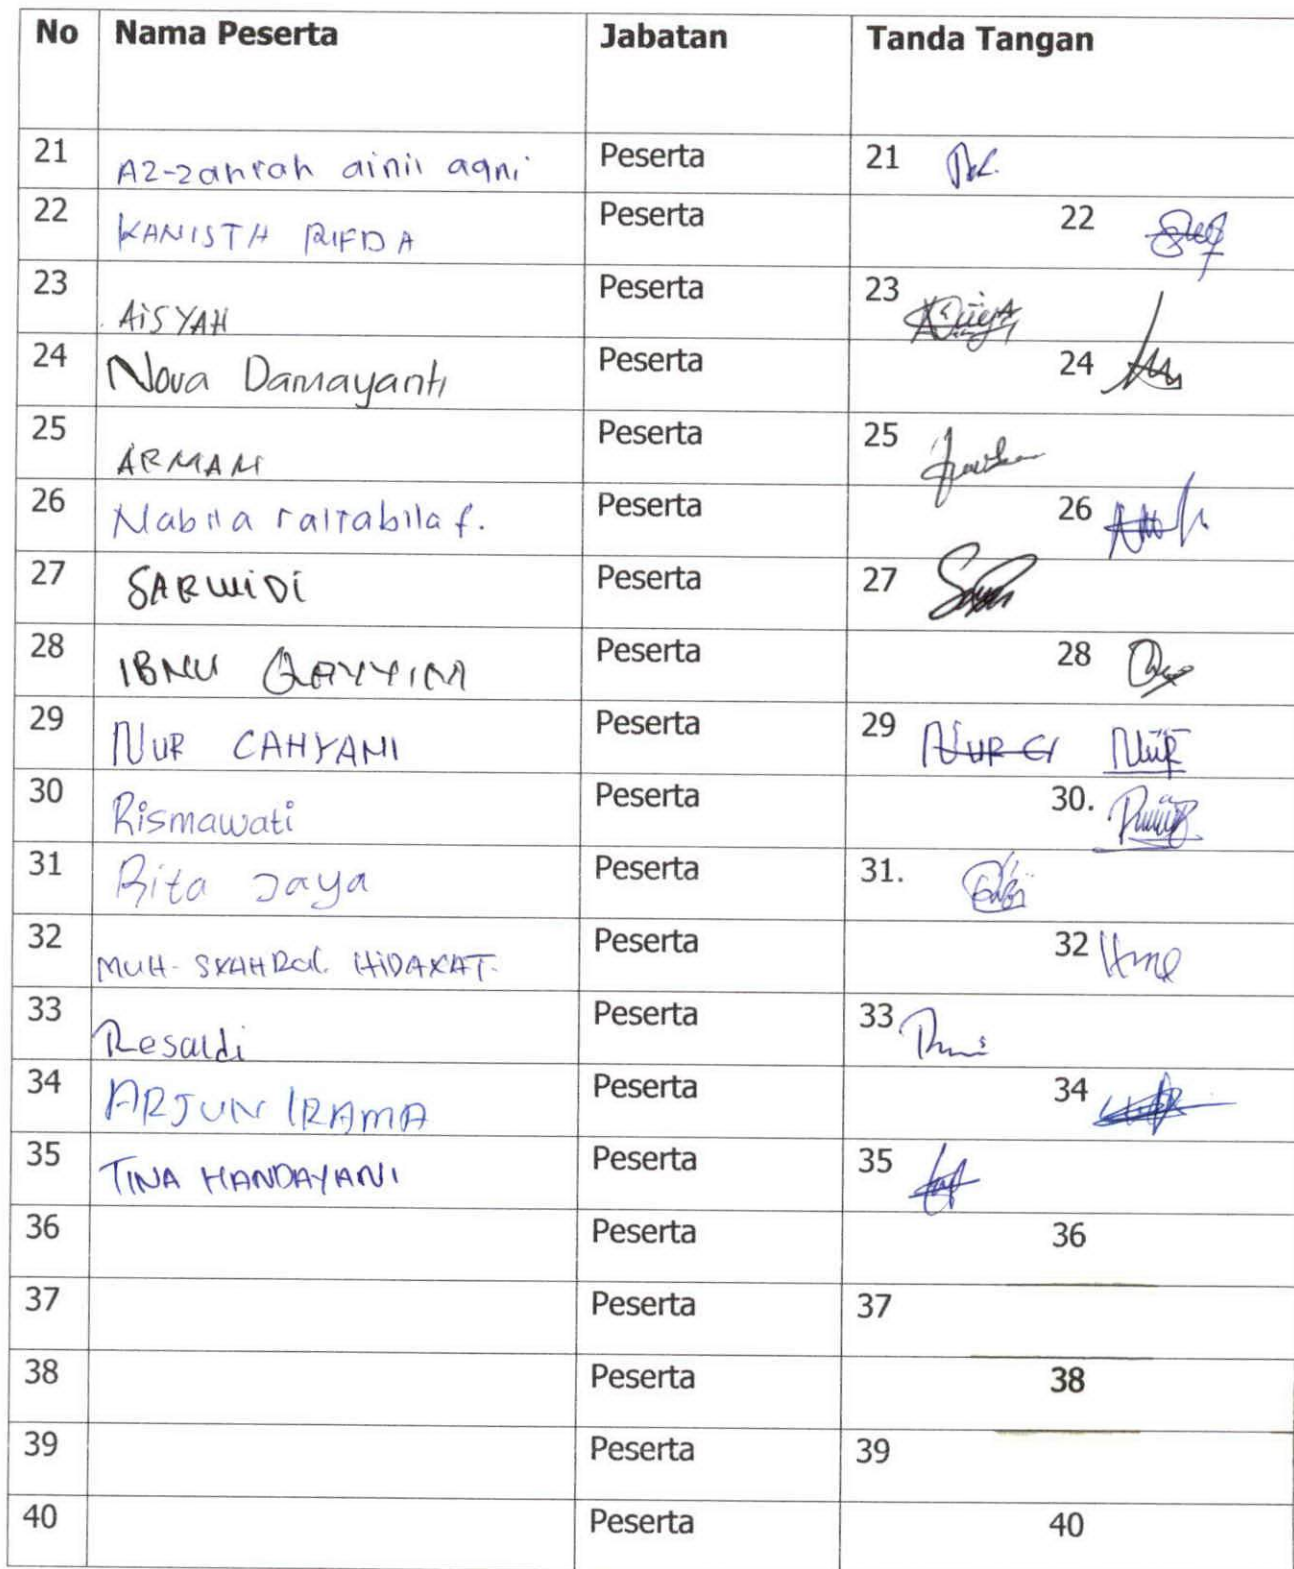 No Nama Peserta Jabatan Tanda Tangan
21 Az-zahrah ainii aqni Peserta 21
22 KANISTH RIFDA Peserta 22
23 AiSYAH Peserta 23
24 Nova Damayanti Peserta 24
25 ARMAN Peserta 25
26 Nabila f. Peserta 26
27 SARWiDi Peserta 27
28 IBNU QAYYIM Peserta 28
29 NUR CAHYANI Peserta 29 NUR
30 Rismawati Peserta 30.
31 Rita Jaya Peserta 31.
32 MUH- SYAHRUL HiDAYAT. Peserta 32
33 Resaldi Peserta 33
34 ARJUN IRAMA Peserta 34
35 TINA HANDAYANI Peserta 35
36 Peserta 36
37 Peserta 37
38 Peserta 38
39 Peserta 39
40 Peserta 40